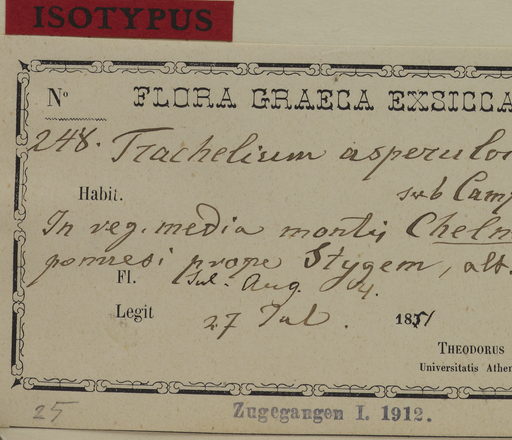 ISOTYPUS
Nº FLORA GRAECA EXSICCA
248. Trachelium asperulo
Habit. sub Camp
In reg. media montis Cheln
prope Stygem, alt.
Fl. Jul. Aug. 4.
Legit 27 Jul. 1851
THEODORUS
Universitatis Athen
25 Zugegangen I. 1912.